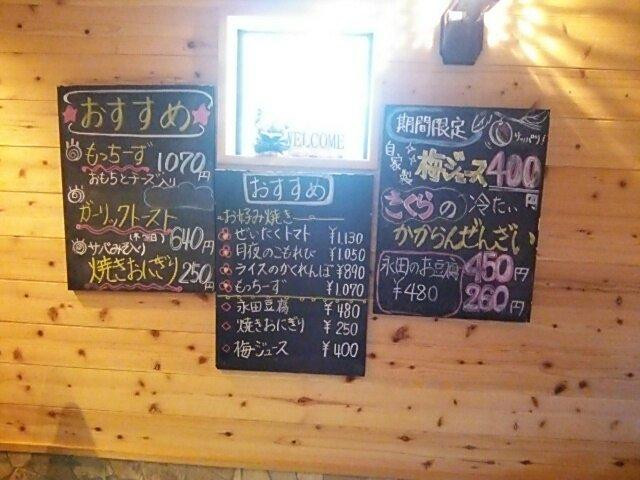 おすすめ
もっちーず 1070円
おもちとチーズ入り
ガーリックトースト
640円
サバみそ入り
焼きおにぎり 250円
WELCOME
おすすめ
お好み焼き
ぜいたくトマト ¥1,130
月夜のこもれび ¥1,050
ライスのかくれんぼ ¥890
もっちーず ¥1,070
永田豆腐 ¥480
焼きおにぎり ¥250
梅ジュース ¥400
期間限定
自家製 梅ジュース 400円
さくらの冷たい
かからんぜんざい
永田のお豆腐 450円
¥480 260円